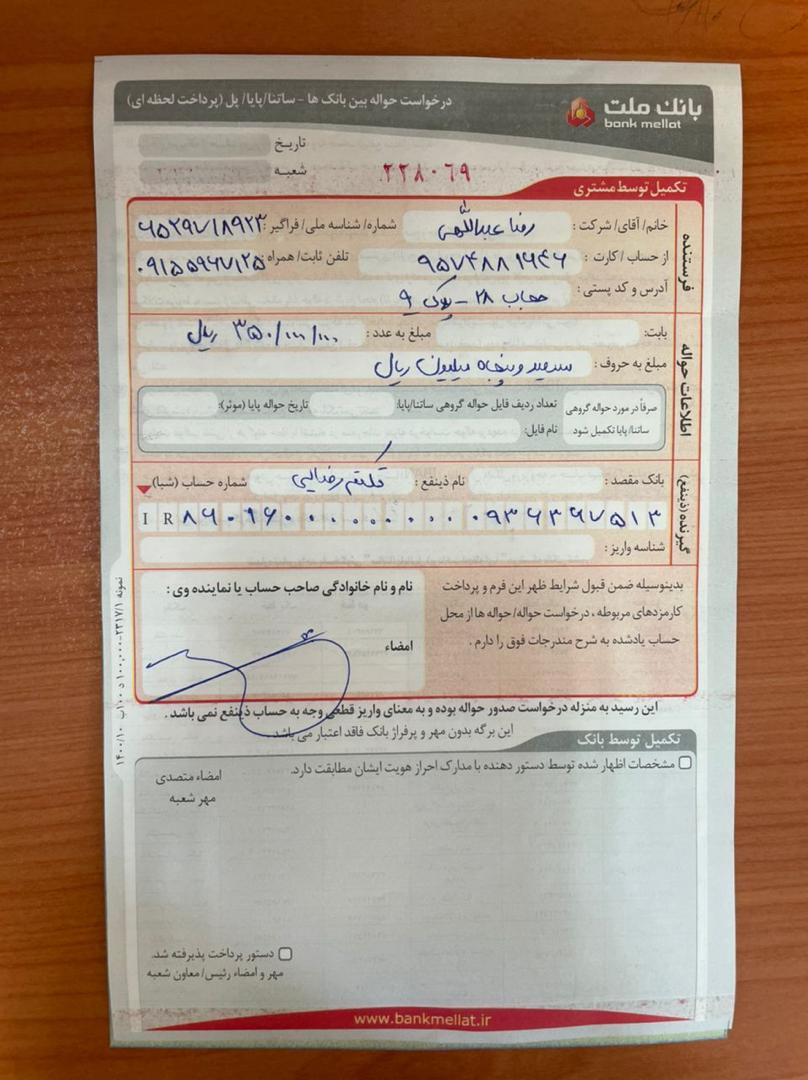 بانک ملت
bank mellat
درخواست حواله بین بانک ها - ساتنا/پایا/ پل (پرداخت لحظه ای)
تاریخ
شعبه
۲۲۸۰۶۹
تکمیل توسط مشتری
فرستنده
خانم/ آقای/ شرکت : رضا عبداللهی شماره/ شناسه ملی/ فراگیر : ۶۵۲۹۷۱۸۹۲۳
از حساب /کارت : ۹۵۷۴۸۸۱۶۴۶ تلفن ثابت/ همراه : ۰۹۱۵۵۹۶۷۱۲۵
آدرس و کد پستی : ۲۸ - پلاک ۹
اطلاعات حواله
بابت: مبلغ به عدد : ۳۵۰/۰۰۰/۰۰۰ ریال
مبلغ به حروف : سیصد و پنجاه میلیون ریال
صرفاً در مورد حواله گروهی ساتنا/ پایا تکمیل شود
تعداد ردیف فایل حواله گروهی ساتنا/پایا: تاریخ حواله پایا (موثر):
نام فایل:
گیرنده (ذینفع)
بانک مقصد : نام ذینفع : رضایی شماره حساب (شبا)
I R ۸۶۰۱۶۰۰۰۰۰۰۰۰۰۰۰۹۳۶۳۶۷۵۱۳
شناسه واریز :
بدینوسیله ضمن قبول شرایط ظهر این فرم و پرداخت
کارمزدهای مربوطه ، درخواست حواله/ حواله ها از محل
حساب یادشده به شرح مندرجات فوق را دارم .
نام و نام خانوادگی صاحب حساب یا نماینده وی :
امضاء
این رسید به منزله درخواست صدور حواله بوده و به معنای واریز قطعی وجه به حساب ذینفع نمی باشد .
این برگه بدون مهر و پرفراژ بانک فاقد اعتبار می باشد
تکمیل توسط بانک
مشخصات اظهار شده توسط دستور دهنده با مدارک احراز هویت ایشان مطابقت دارد.
امضاء متصدی
مهر شعبه
دستور پرداخت پذیرفته شد.
مهر و امضاء رئیس/ معاون شعبه
www.bankmellat.ir
نمونه ۲۳۱۷/۱-۱۰۰,۰۰۰ د ۱۰۰ب ۱۴۰۰/۱۰